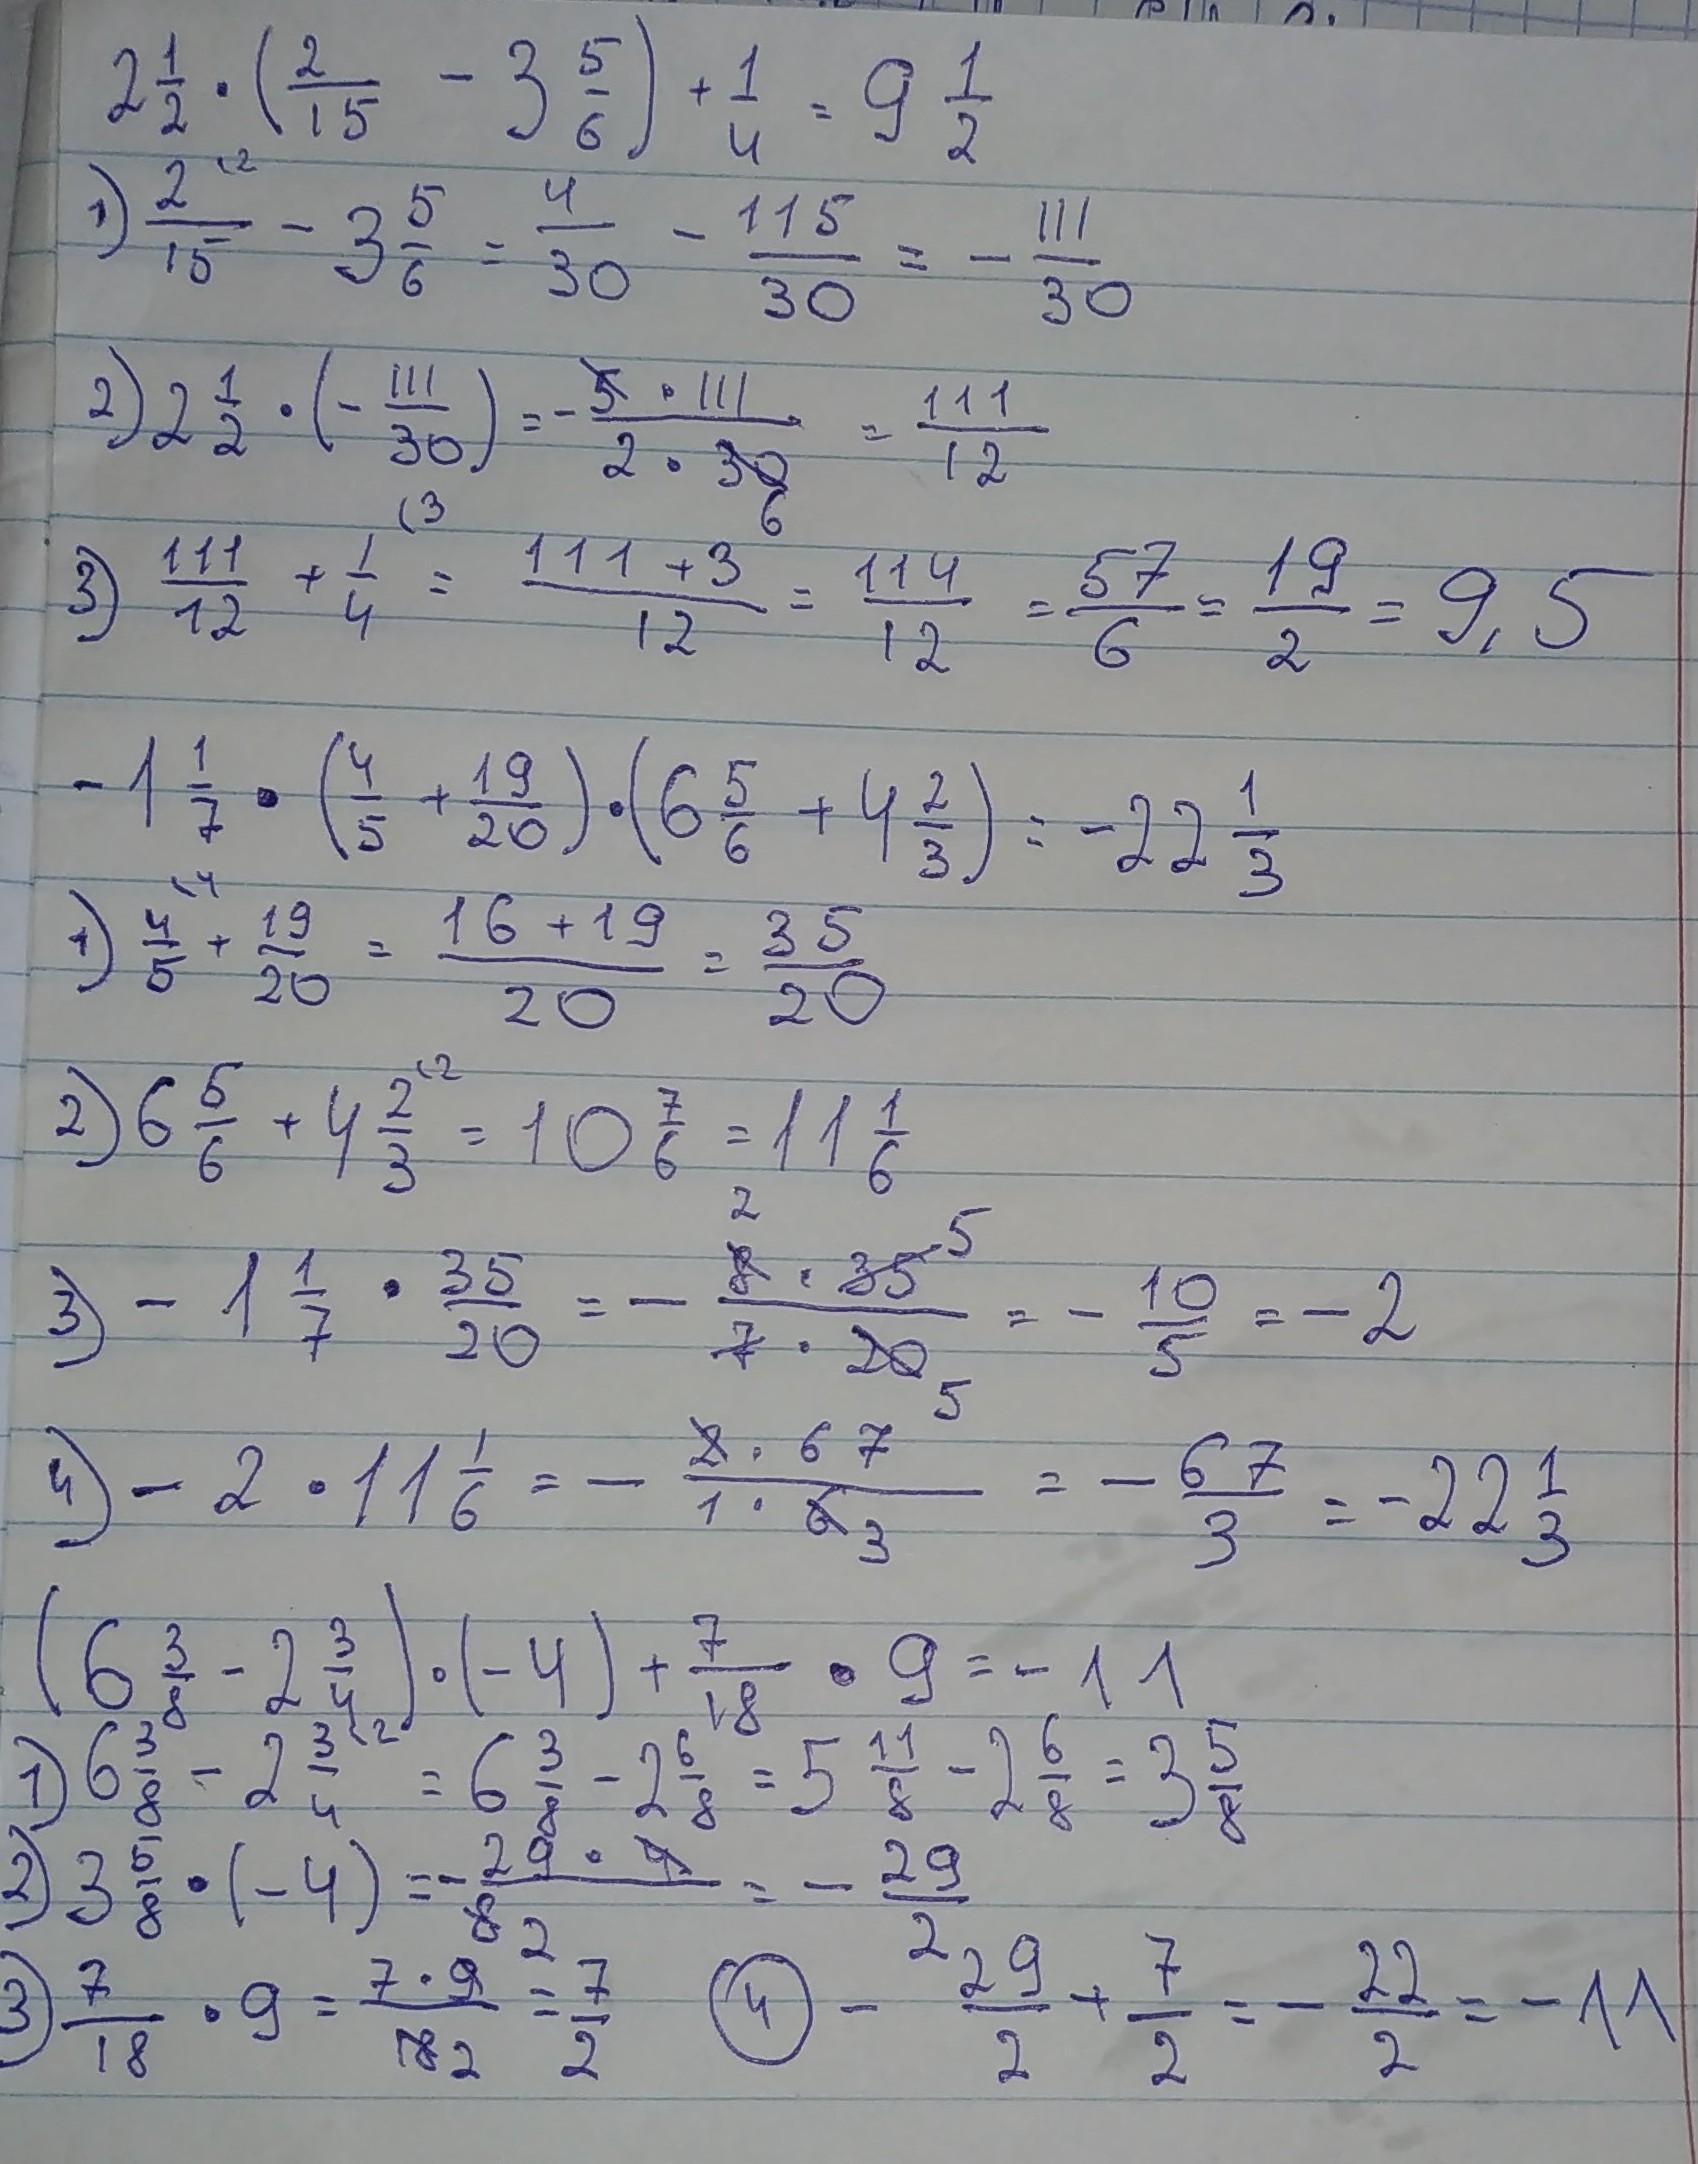 2 1/2 · (2/15 - 3 5/6) + 1/4 = 9 1/2
1) 2/15 (2 - 3 5/6 = 4/30 - 115/30 = - 111/30
2) 2 1/2 · (- 111/30) = - 5 · 111 / 2 · 30 6 = 111/12
3) 111/12 + 1/4 (3 = 111 + 3 / 12 = 114/12 = 57/6 = 19/2 = 9,5
- 1 1/7 · (4/5 + 19/20) · (6 5/6 + 4 2/3) = - 22 1/3
1) 4/5 (4 + 19/20 = 16 + 19 / 20 = 35/20
2) 6 5/6 + 4 2/3 (2 = 10 7/6 = 11 1/6
3) - 1 1/7 · 35/20 = - 8 2 · 35 5 / 7 · 20 5 = - 10/5 = - 2
4) - 2 · 11 1/6 = - 2 · 67 / 1 · 6 3 = - 67/3 = - 22 1/3
(6 3/8 - 2 3/4) · (- 4) + 7/18 · 9 = - 11
1) 6 3/8 - 2 3/4 (2 = 6 3/8 - 2 6/8 = 5 11/8 - 2 6/8 = 3 5/8
2) 3 5/8 · (- 4) = - 29 · 4 / 8 2 = - 29/2
3) 7/18 · 9 = 7 · 9 / 18 2 = 7/2 4 - 29/2 + 7/2 = - 22/2 = - 11